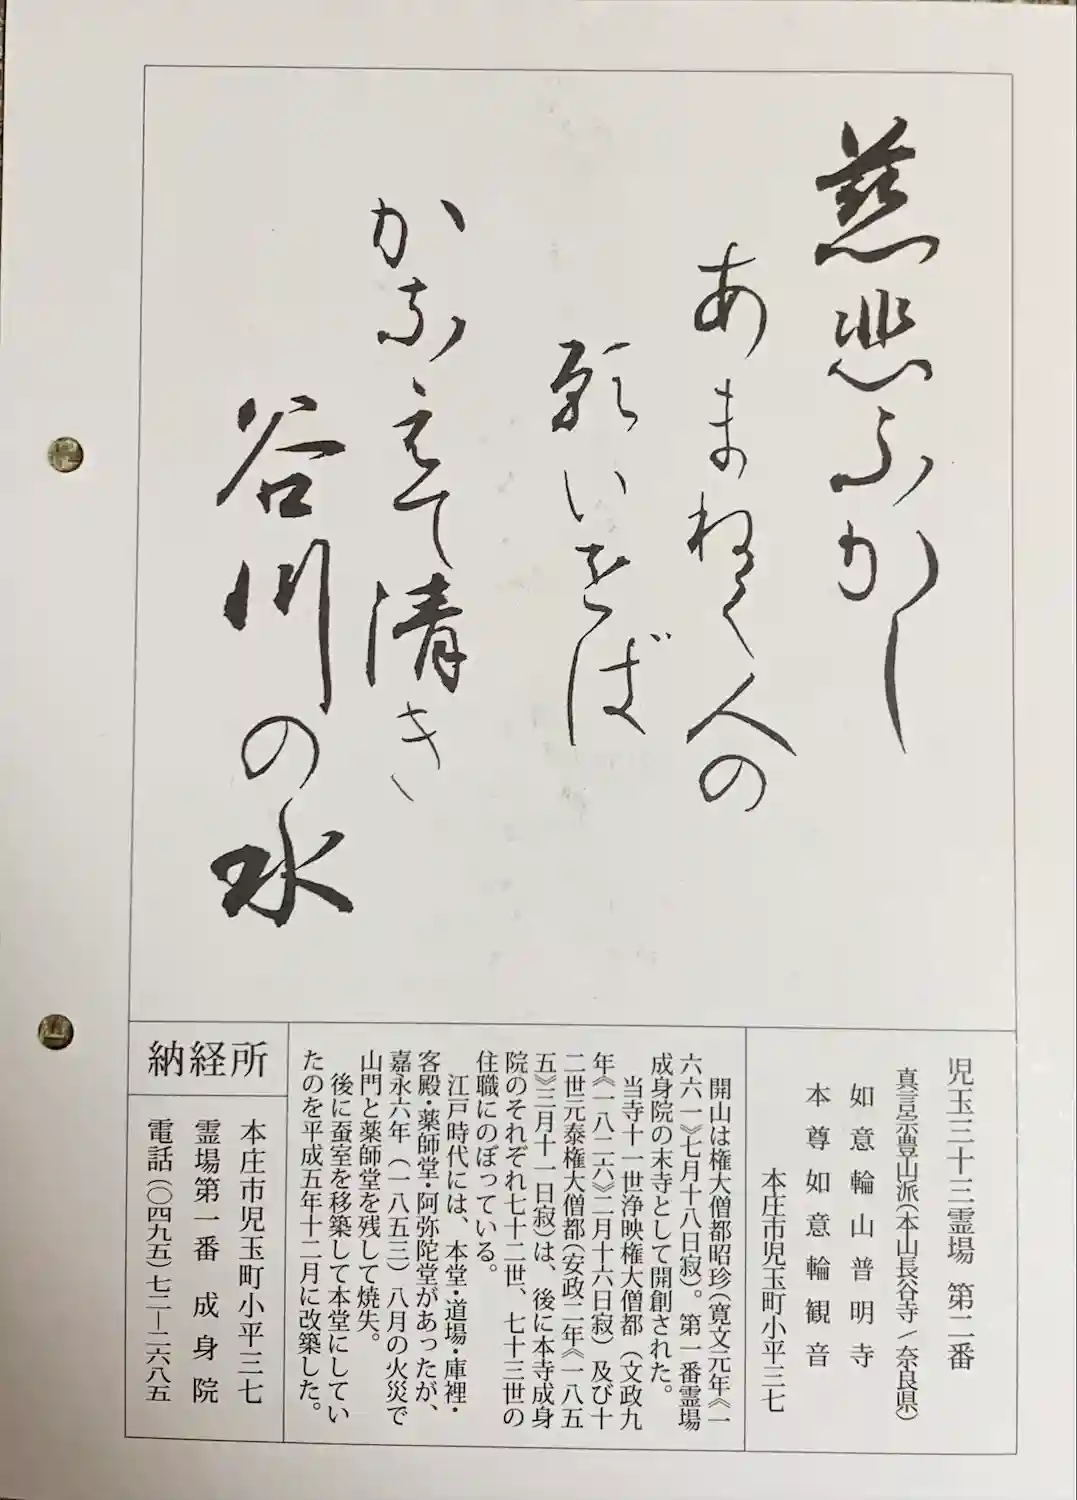 慈悲ふかし
あまねく人の
願いをば
かなえて清き
谷川の水
児玉三十三霊場 第二番
真言宗豊山派(本山長谷寺/奈良県)
如意輪山普明寺
本尊如意輪観音
本庄市児玉町小平三七
開山は権大僧都昭珍(寛文元年《一
六六一》七月十八日寂)。第一番霊場
成身院の末寺として開創された。
当寺十一世浄映権大僧都(文政九
年《一八二六》二月十六日寂)及び十
二世元泰権大僧都(安政二年《一八五
五》三月十一日寂)は、後に本寺成身
院のそれぞれ七十二世、七十三世の
住職にのぼっている。
江戸時代には、本堂・道場・庫裡・
客殿・薬師堂・阿弥陀堂があったが、
嘉永六年(一八五三)八月の火災で
山門と薬師堂を残して焼失。
後に蚕室を移築して本堂にしてい
たのを平成五年十二月に改築した。
納経所
本庄市児玉町小平三七
霊場第一番 成身院
電話(〇四九五)七二―二六八五